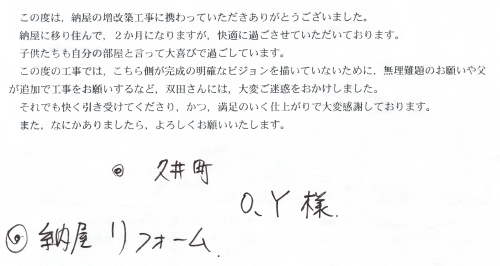 この度は，納屋の増改築工事に携わっていただきありがとうございました。
納屋に移り住んで，２か月になりますが，快適に過ごさせていただいております。
子供たちも自分の部屋と言って大喜びで過ごしています。
この度の工事では，こちら側が完成の明確なビジョンを描いていないために，無理難題のお願いや父
が追加で工事をお願いするなど，双田さんには，大変ご迷惑をおかけしました。
それでも快く引き受けてくださり，かつ，満足のいく仕上がりで大変感謝しております。
また，なにかありましたら，よろしくお願いいたします。
◎ 久井町
O、Y様.
◎ 納屋リフォーム.